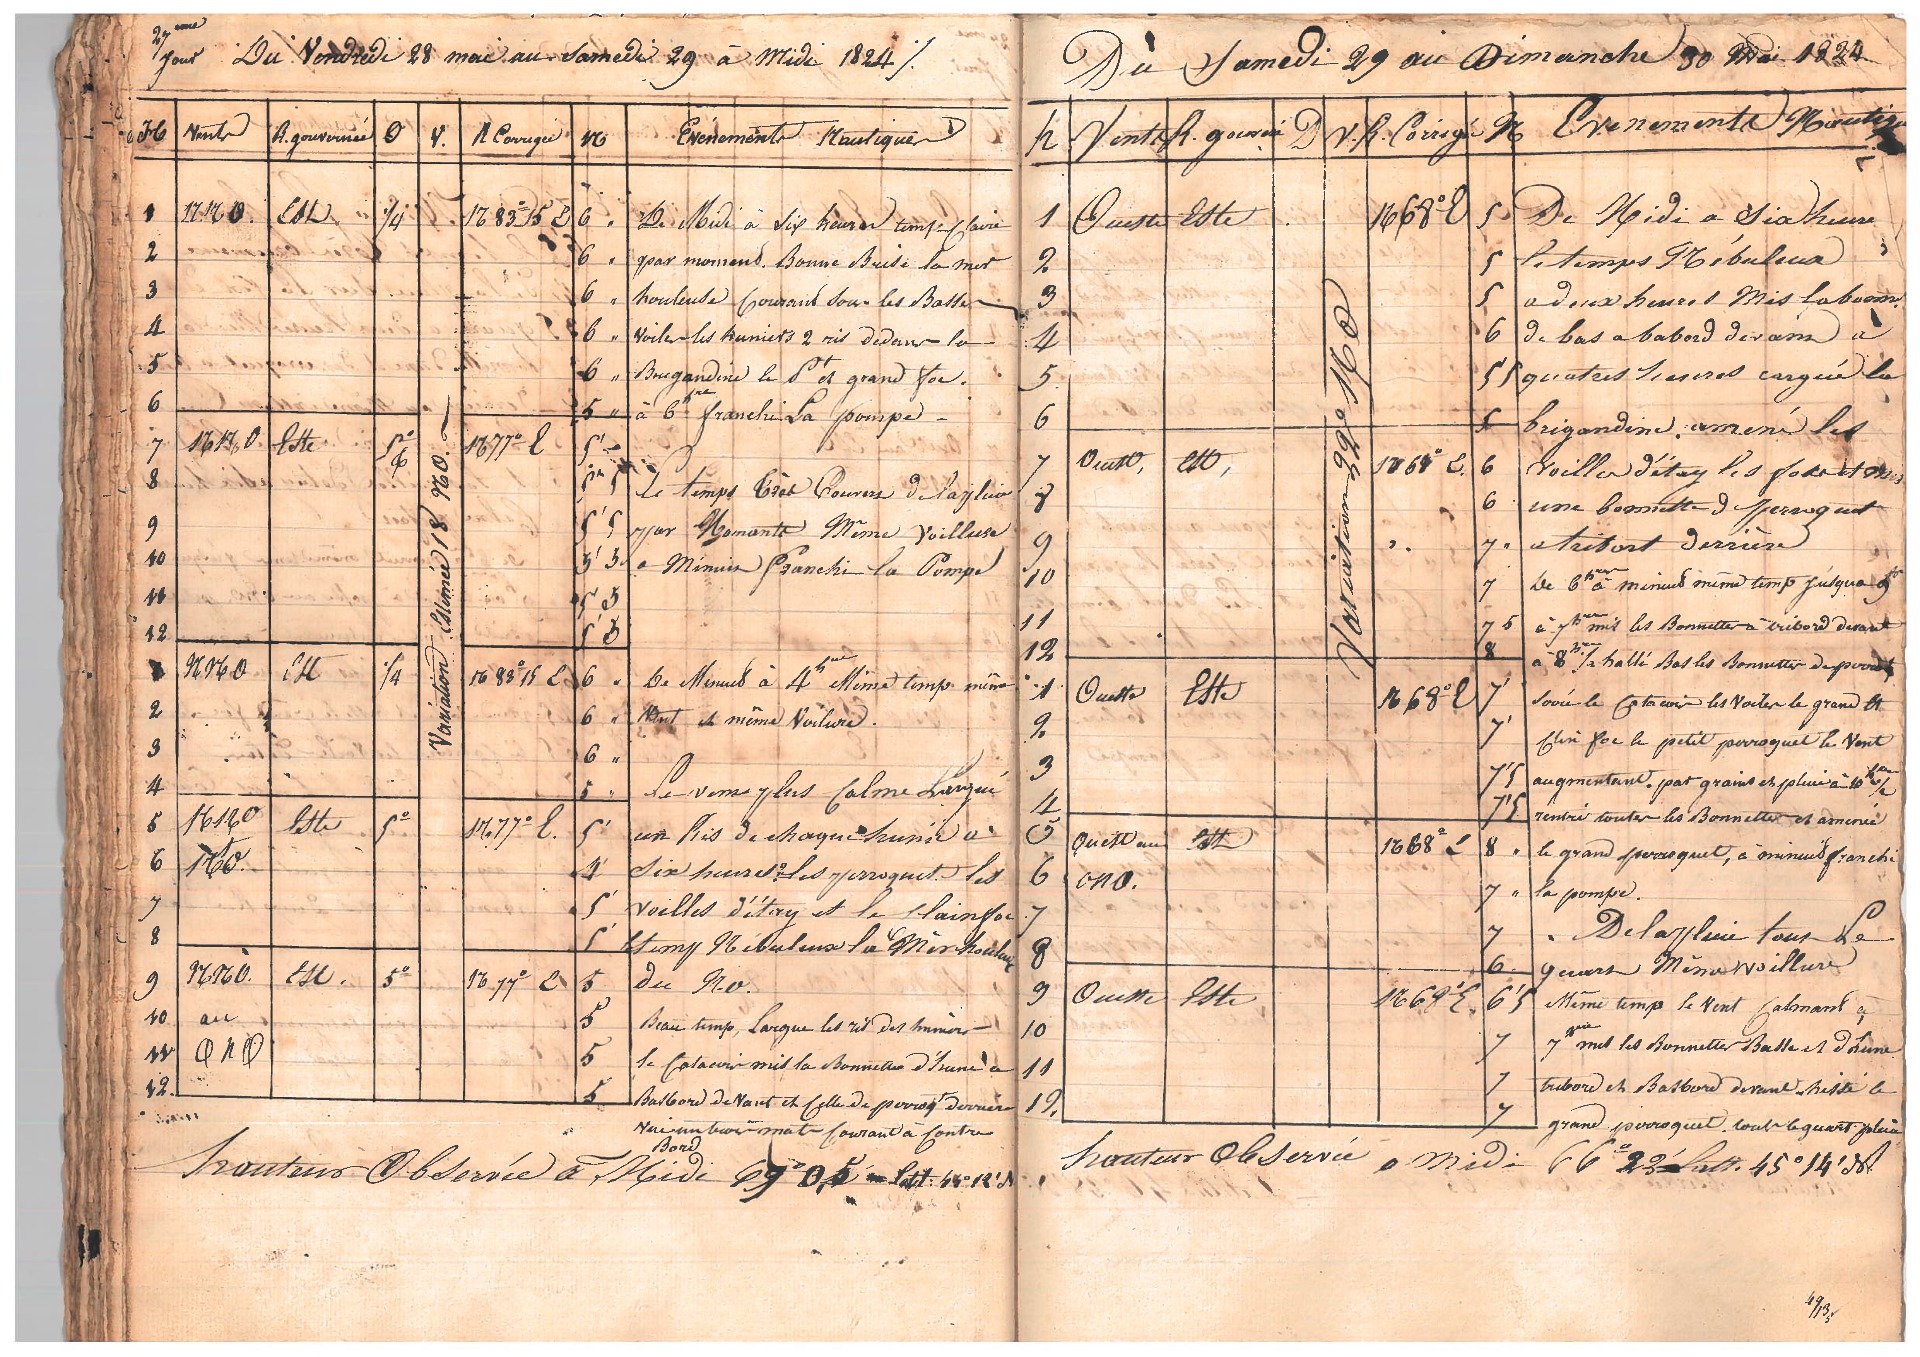 27eme Jour Du Vendredi 28 mai au Samedi 29 à Midi 1824
H Vents R. gouvernée D V. R Corrigée N Evénements Nautiques
1 NNO. Est 1/4 N 83° 15 E 6 " De Midi à Six heures temps Claire
2 6 " par moment. Bonne Brise la mer
3 6 " houleuse Courant sous les Basse
4 6 " Voiles les huniers 2 ris dedans la
5 6 " Brigandine le Pt et grand foc.
6 5 " à 6 hre franchi La pompe
7 NNO Este 5° N 77° E 5'
8 Le temps très Couvers de la pluie
9 5' 5 par Momants Même Voillure
10 a Minuit Franchi la Pompe
11
12
Variation Estimée 18 NO.
1 NNO Est 1/4 N 83° 15 E 6 " De Minuit à 4 hre Même temp même
2 6 " Vent et même Voilure.
3 6 "
4 5 " Le vens plus Calme Largué
5 NNO Este 5° N 77° E. 5' un Ris de chaque hunié a
6 NO. 4' Six heures les perroquet les
7 5' voilles d'étay et le clainfoc
8 5' temp Nébuleux la Mèr houleuse
9 NNO. Est. 5° N 77° E 5 du No.
10 au 5 Beau temp, Largue les ris des huniers
11 ONO 5 le Catacoir mis la Bonnettes d'hune à
12. 5 Basbord devant et Celle de perroqt derrière
Vue un trois mats Courant à Contre
Bord
hauteur Observée à Midi Latt. 44° 12' N
Du Samedi 29 au Dimanche 30 Mai 1824
h Vents R. gouvée D V. R. Corrigé N Evenements Nautique
1 Oueste Este N 68° E 5 De Midi a Six heure
2 5 le temps Nébuleux
3 5 a deux heures Mis la bonn.
4 6 de bas a babord devant a
5 5'5 quatres heures cargué la
6 5 brigandine. amené les
7 Ouest, Est, N 68° E. 6 Voilles d'étay les focs et mis
8 6 une bonnette de perroquet
9 7 " a tribort derrière
10 7 De 6 hres à minuit même temp jusqua 9 hre
11 7 5 à 7 hres mis les Bonnettes à tribord devant
12 8 à 8 hre 1/2 hallé Bas les Bonnettes de perroqt
Variation 22° NO
1 Oueste Este N 68° E 7' Serré le Catacoir les Voiles le grand et
2 7' Clin foc le petit perroquet le Vent
3 7'5 augmentant par grains et pluie à 10 hre 1/2
4 7'5 rentré toutes les Bonnettes et amené
5 Ouest au Est N 68° E 8 " le grand perroquet, à minuit franchi
6 ONO. 7 " la pompe.
7 7 " De la pluie tous Le
8 6 quars Même voillure
9 Oueste Este N 68° E. 6'5 Même temp le Vent Calmant à
10 7 7 hre mis les Bonnettes Basse et d'hune
11 7 tribord et Basbord devant hissé le
12. 7 grand perroquet. tout le quart pluie
hauteur Observée a Midi 66° 23' Latt. 45° 14' N.